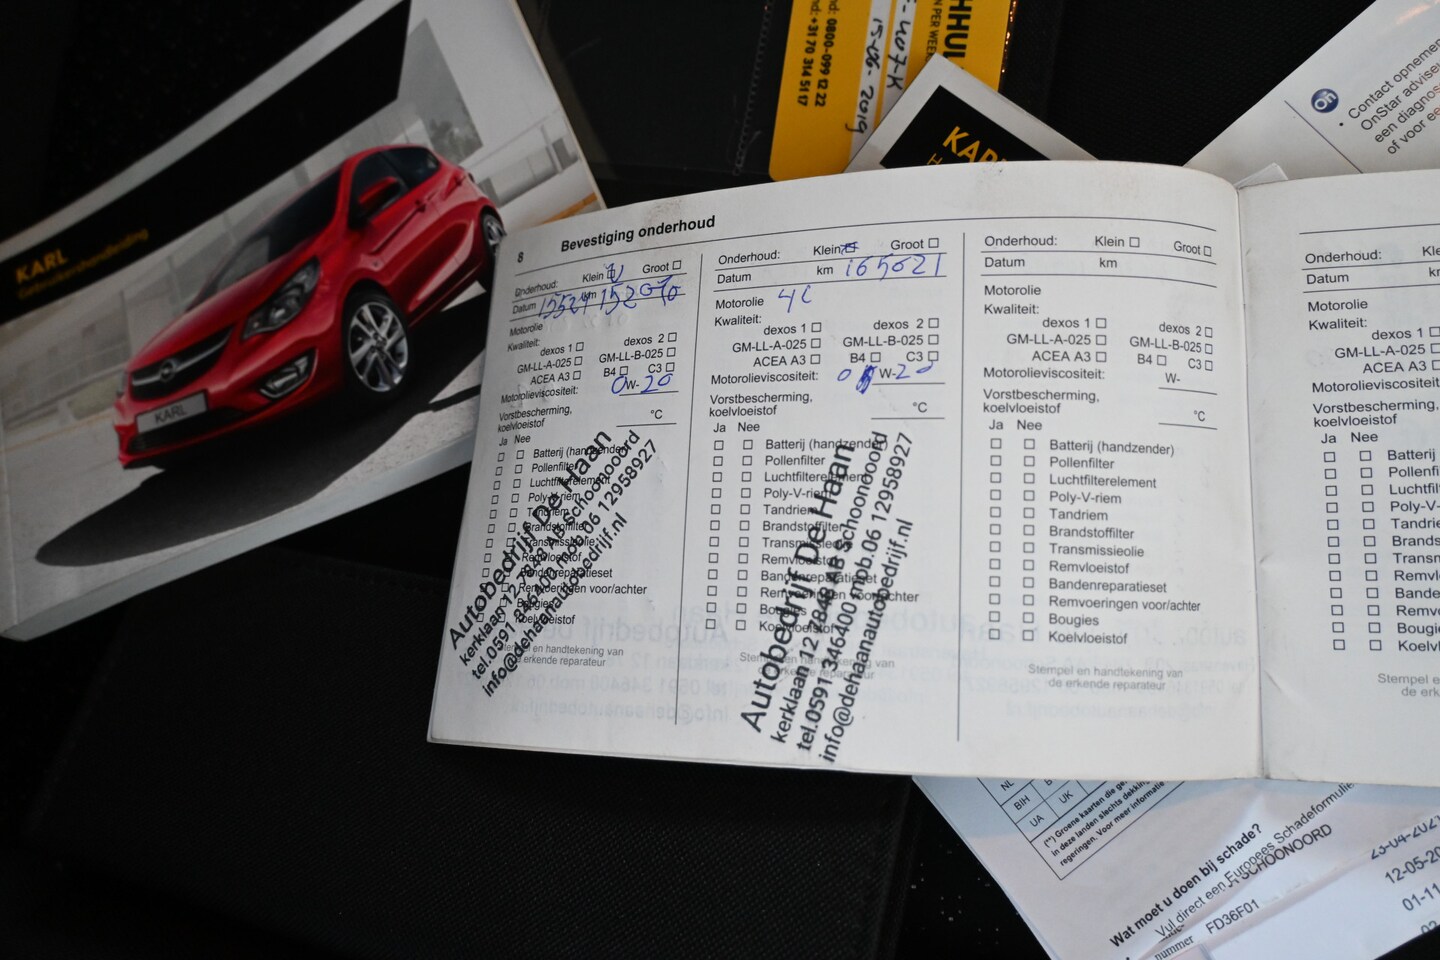 KARL
Gebruikershandleiding
KARL
HHUL
N PER WEEK
nd: 0800-099 12 22
nd: +31 70 314 51 17
15-06-2019
KARL
H
Contact opnemen
OnStar advise
een diagnos
of voor ee
8 Bevestiging onderhoud
Onderhoud: Klein Groot
Datum km
Motorolie
Kwaliteit:
dexos 1 dexos 2
GM-LL-A-025 GM-LL-B-025
ACEA A3 B4 C3
Motorolieviscositeit: 0W-20
Vorstbescherming,
koelvloeistof °C
Ja Nee
Batterij (handzender)
Pollenfilter
Luchtfilterelement
Poly-V-riem
Tandriem
Brandstoffilter
Transmissieolie
Remvloeistof
Bandenreparatieset
Remvoeringen voor/achter
Bougies
Koelvloeistof
Stempel en handtekening van
de erkende reparateur
Autobedrijf De Haan
kerklaan 12 7848
Schoonoord
tel.0591 346400 mob.06 12958927
info@dehaanautobedrijf.nl
Onderhoud: Klein Groot
Datum km 165021
Motorolie 4L
Kwaliteit:
dexos 1 dexos 2
GM-LL-A-025 GM-LL-B-025
ACEA A3 B4 C3
Motorolieviscositeit: 0 W-20
Vorstbescherming,
koelvloeistof °C
Ja Nee
Batterij (handzender)
Pollenfilter
Luchtfilterelement
Poly-V-riem
Tandriem
Brandstoffilter
Transmissieolie
Remvloeistof
Bandenreparatieset
Remvoeringen voor/achter
Bougies
Koelvloeistof
Stempel en handtekening van
de erkende reparateur
Autobedrijf De Haan
kerklaan 12 7848
Schoonoord
tel.0591 346400 mob.06 12958927
info@dehaanautobedrijf.nl
Onderhoud: Klein Groot
Datum km
Motorolie
Kwaliteit:
dexos 1 dexos 2
GM-LL-A-025 GM-LL-B-025
ACEA A3 B4 C3
Motorolieviscositeit: W-
Vorstbescherming,
koelvloeistof °C
Ja Nee
Batterij (handzender)
Pollenfilter
Luchtfilterelement
Poly-V-riem
Tandriem
Brandstoffilter
Transmissieolie
Remvloeistof
Bandenreparatieset
Remvoeringen voor/achter
Bougies
Koelvloeistof
Stempel en handtekening van
de erkende reparateur
Onderhoud: Kle
Datum
Motorolie
Kwaliteit:
dexos 1
GM-LL-A-025
ACEA A3
Motorolieviscositeit
Vorstbescherming,
koelvloeistof
Ja Nee
Batterij
Pollenfi
Luchtfil
Poly-V-
Tandrie
Brands
Transm
Remvl
Bande
Remvo
Bougi
Koelvl
Stempel e
de erk
NL
BIH
UA
UK
(*) Groene kaarten die ge
in deze landen slechts dekking
regeringen. Voor meer informatie
Wat moet u doen bij schade?
Vul direct een Europees Schadeformulie
SCHOONOORD
nummer FD36F01
23-04-202
12-05-20
01-11